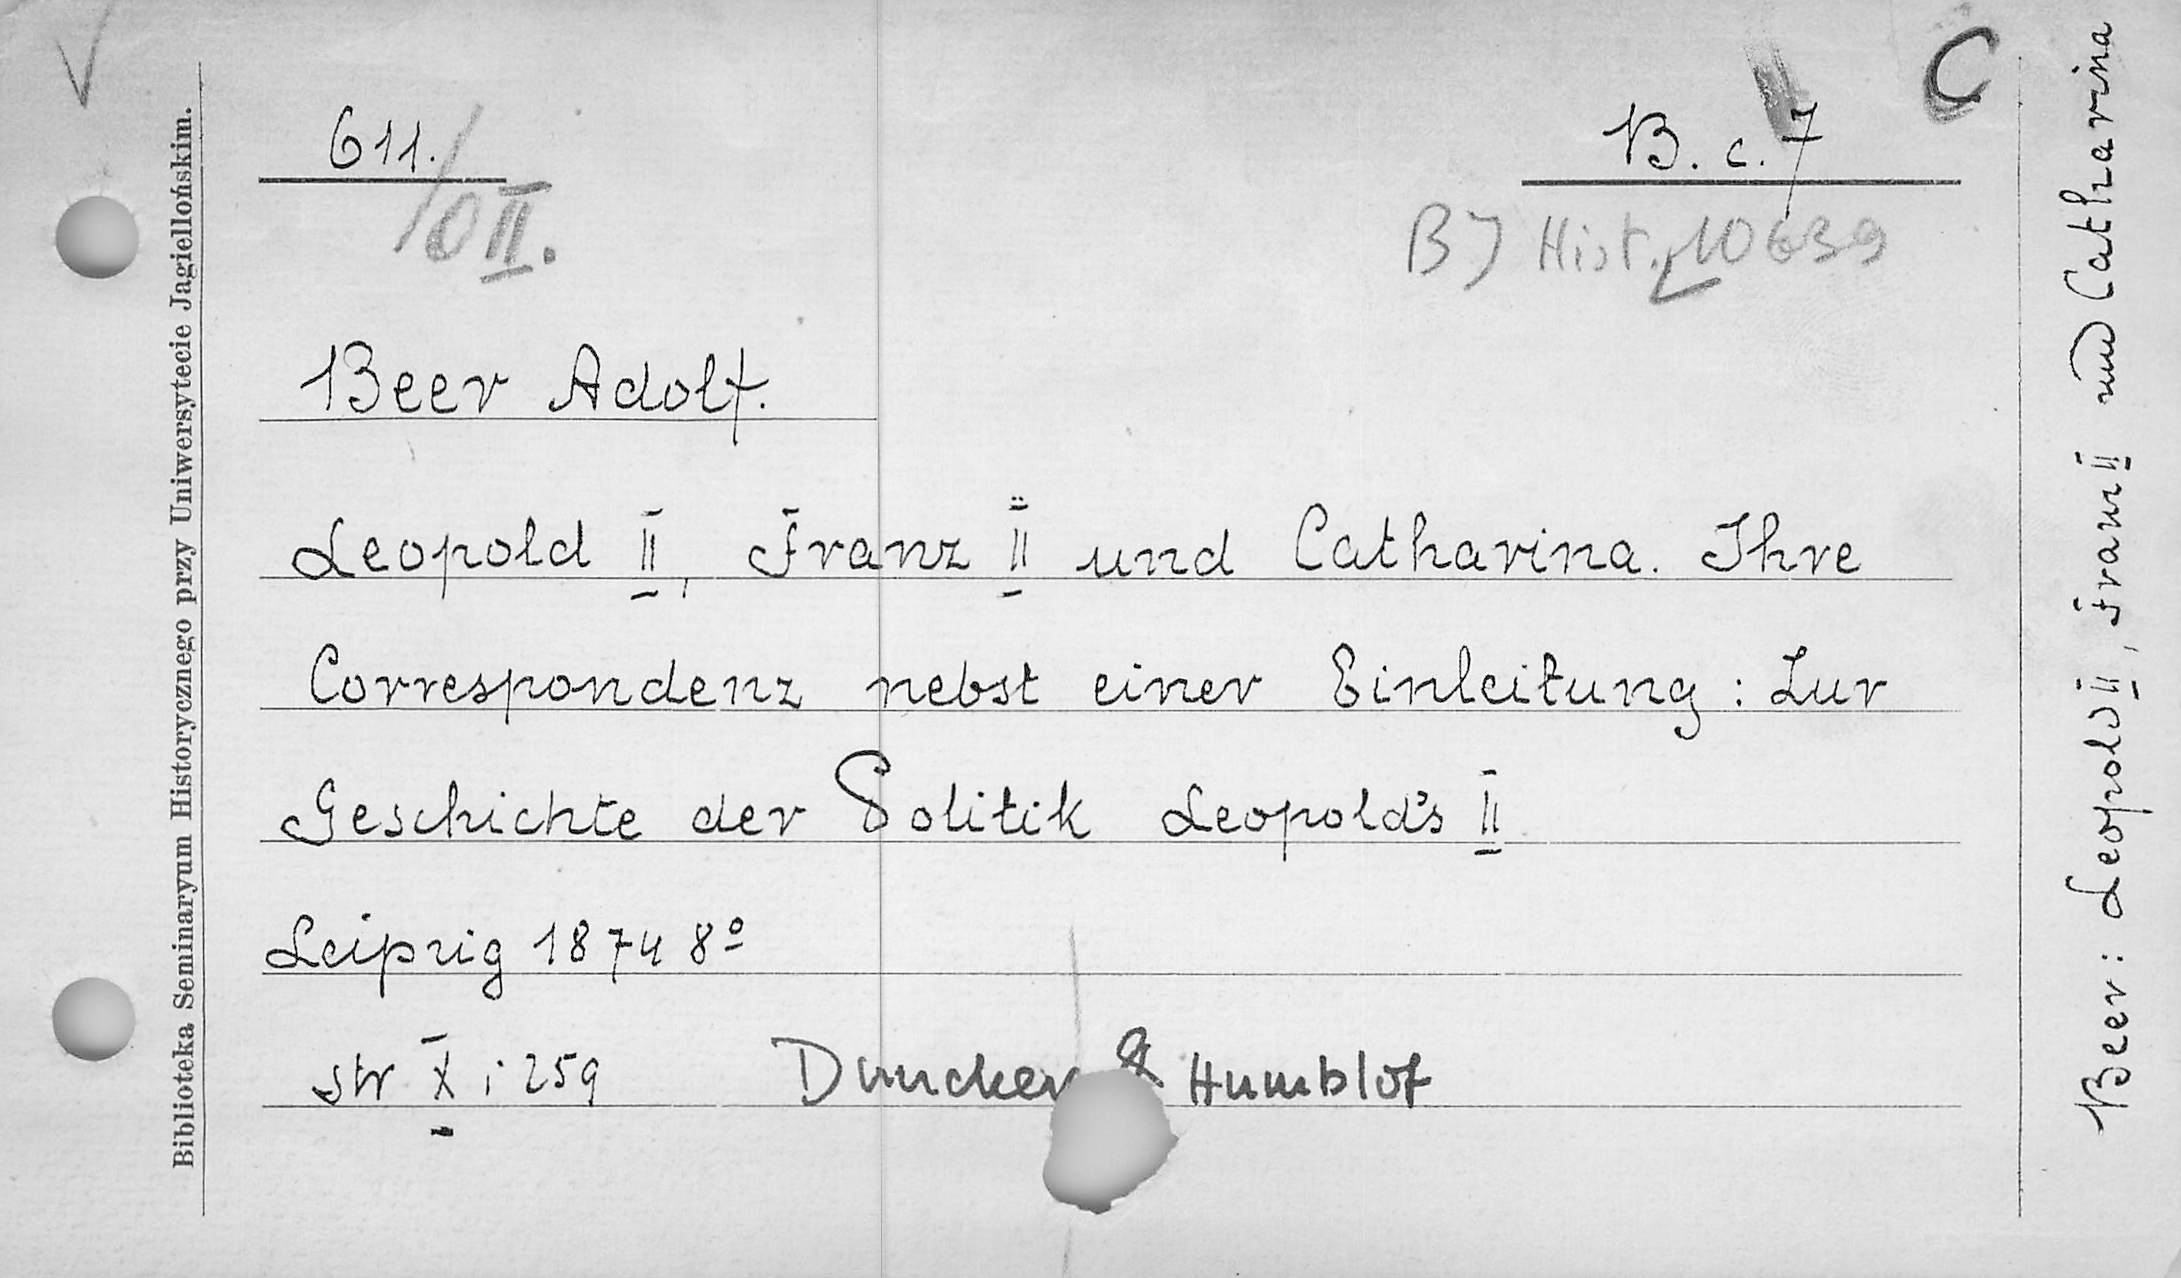 611.
/OII.
B. c. 7
C
BJ Hist. 10639
Beer Adolf.
Leopold II, Franz II und Catharina. Ihre
Correspondenz nebst einer Einleitung: Zur
Geschichte der Politik Leopold's II
Leipzig 1874 8º
str X i 259 Duncker & Humblot
Biblioteka Seminaryum Historycznego przy Uniwersytecie Jagiellońskim.
Beer: Leopold II, Franz II und Catharina